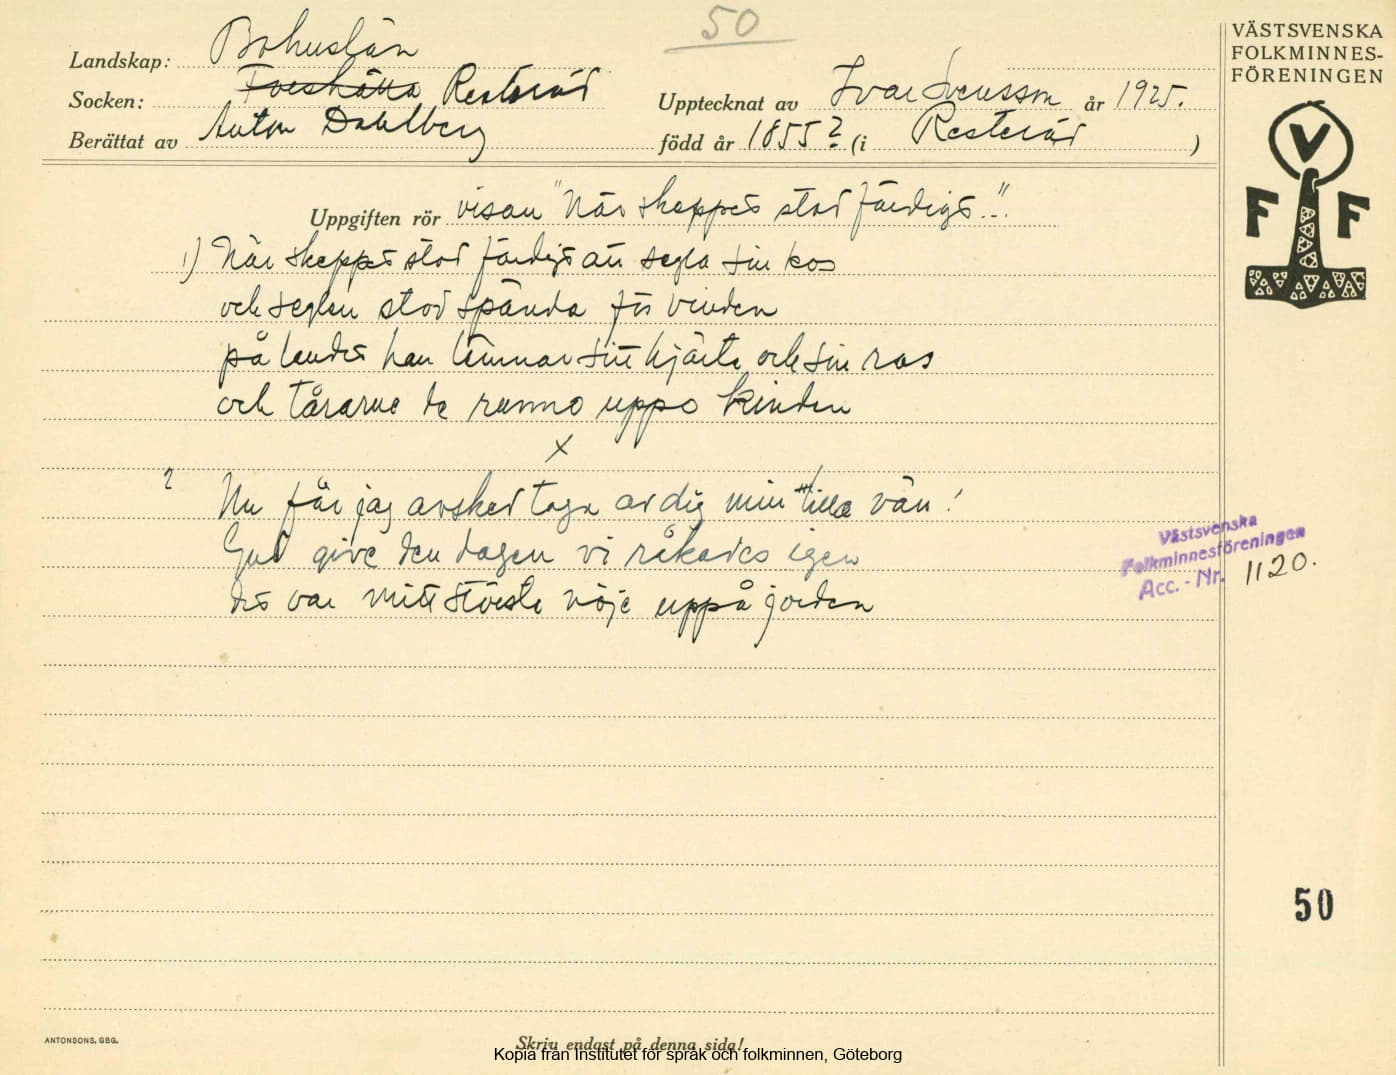 50
VÄSTSVENSKA
FOLKMINNES-
FÖRENINGEN
V
F F
Landskap: Bohuslän
Socken: Foreshälla Resteröd
Upptecknat av Ivar Svensson år 1925.
Berättat av Anton Dahlberg
född år 1855? (i Resteröd)
Uppgiften rör visan "När skeppet stod färdigt..."
1) När skeppet stod färdigt att segla sin kos
och seglen stod spända för vinden
på landet han lämnar sitt hjärta och sin ros
och tårarne de runno uppo kinden
x
2 Nu får jag avsked taga av dig min lilla vän!
Gud give den dagen vi råkades igen
det var mitt största nöje uppå jorden
Västsvenska
Folkminnesföreningen
Acc. - Nr. 1120.
50
ANTONSONS, GBG.
Skriv endast på denna sida!
Kopia från Institutet för språk och folkminnen, Göteborg